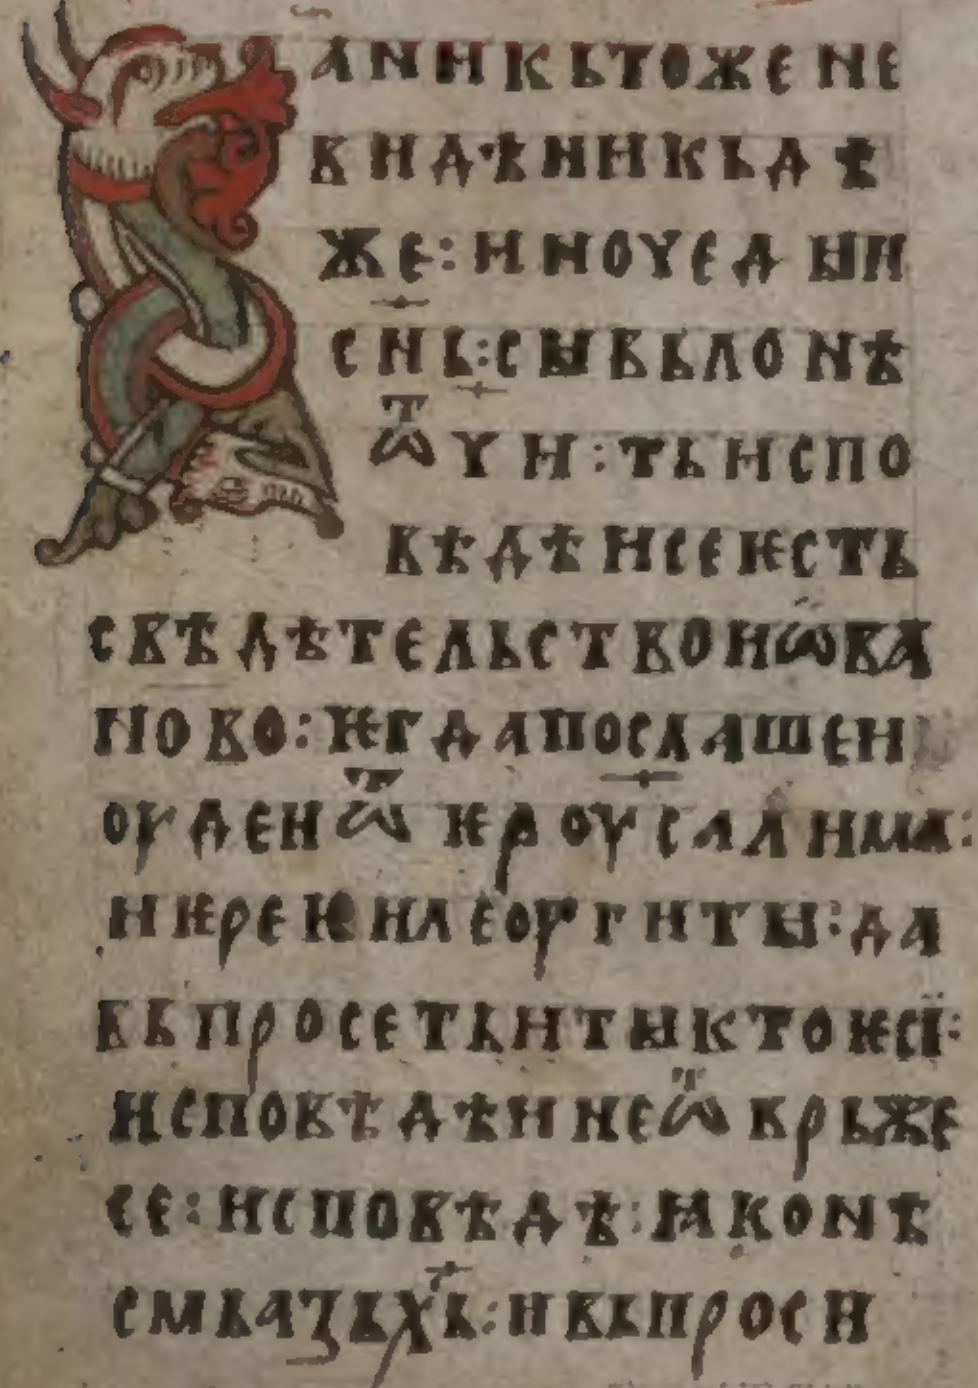 Б҃А НИКЬТОЖЕ НЕ
ВИДѢ НИКЬДѢ
ЖЕ : НЬ ИНОУЕДЫИ
СН҃Ь : СЫ ВЬ ЛОНѢ
Ѿ҃ЧИ : ТЬ ИСПО
ВѢДѢ И СЕ ѤСТЬ
СВѢДѢТЕЛЬСТВО ИѠВА
НОВО : ѤГДА ПОСЛАШЕ И
ОУДЕИ Ѿ ѤРОУСАЛИМА :
ИѤРЕѤ И ЛЕОУГИТЫ : ДА
ВЬПРОСЕТЬ И ТЫ КТО ѤСИ :
ИСПОВѢДѢ И НЕ ѾВРЬЖЕ
СЕ : ИСПОВѢДѢ : ꙖКО НѢ
СМЬ АЗЬ Х҃Ь : И ВЬПРОСИ